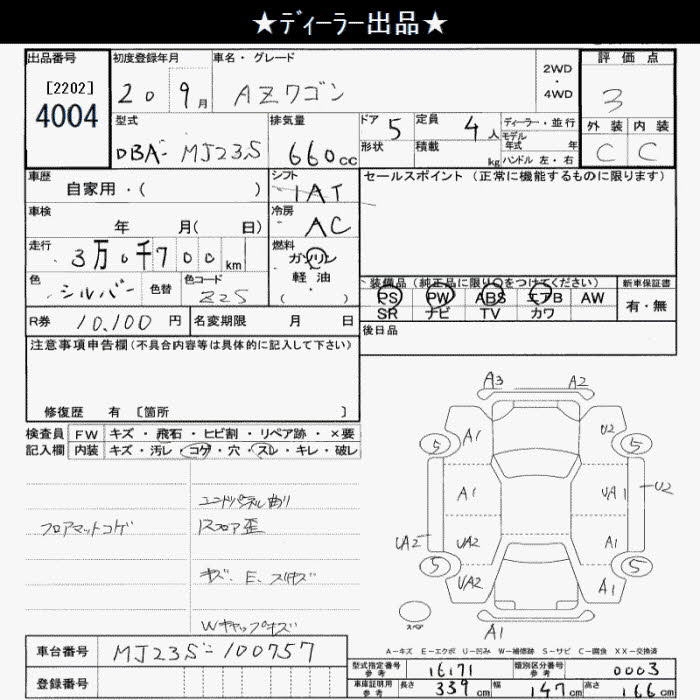 ★ディーラー出品★
出品番号
[2202]
4004
初度登録年月
20 9月
車名・グレード
AZワゴン
2WD
・
4WD
評価点
3
外装 内装
C C
型式
DBA- MJ23S
排気量
660cc
ドア 5
形状
定員 4人
積載 kg
ディーラー・並行
モデル
年式 年
ハンドル 左・右
車歴
自家用・( )
シフト
IAT
車検
年 月( 日)
冷房
AC
走行
3万0千700km
燃料
ガソリン
軽油
( )
色
シルバー
色替
色コード
Z2S
セールスポイント (正常に機能するものに限ります)
装備品 (純正品に限り○をつけてください)
PS PW ABS エアB AW
SR ナビ TV カワ
新車保証書
有・無
R券 10,100 円
名変期限 月 日
後日品
注意事項申告欄 (不具合内容等は具体的に記入して下さい)
修復歴 有 [箇所 ]
検査員
記入欄
FW キズ・飛石・ヒビ割・リペア跡・×要
内装 キズ・汚レ・コゲ・穴・スレ・キレ・破レ
ユニットパネル曲り
フロアマットコゲ
キズ、E、スリキズ
Wキャップキズ
A3 A2
A1 U2
5 5
A1 UA1 U2
UA2 UA2 A1
5 5
UA2 A1
スペア
A1
A-キズ E-エクボ U-凹み W-補修跡 S-サビ C-腐食 XX-交換済
車台番号 MJ23S-100757
登録番号
型式指定番号
参考
16171
類別区分番号
参考
0003
車庫証明用
参考
長さ 339cm 幅 147cm 高さ 166cm